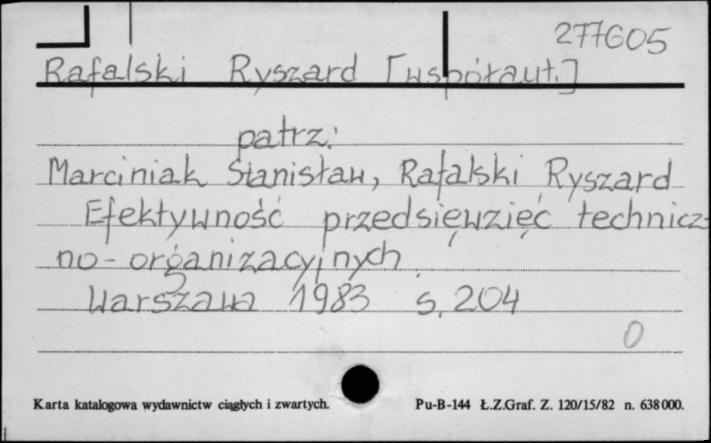 277605
Rafalski Ryszard [współaut.]
patrz:
Marciniak Stanisław, Rafalski Ryszard
Efektywność przedsięwzięć technicz-
no-organizacyjnych
Warszawa 1983 s. 204
0
Karta katalogowa wydawnictw ciągłych i zwartych. Pu-B-144 Ł.Z.Graf. Z. 120/15/82 n. 638000.